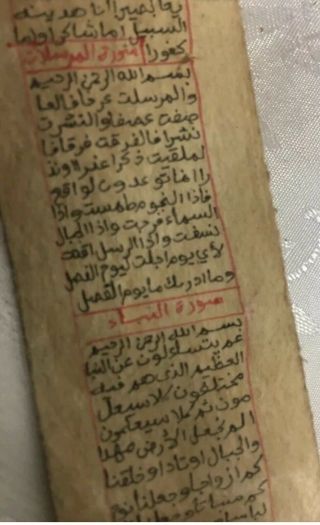 يعا بصيرا انا هدينه
السبيل اما شاكرا واما
كفورا سورة المرسلات
بسم الله الرحمن الرحيم
والمرسلت عرفا فالعا
صفت عصفا والنشرت
نشرا فالفرقت فرقا فا
لملقيت ذكرا عذرا او نذ
را انما توعدون لواقع
فاذا النجوم طمست واذا
السماء فرجت واذا الجبال
نسفت واذا الرسل اقتت
لاي يوم اجلت ليوم الفصل
وما ادريك ما يوم الفصل
سورة النباء
بسم الله الرحمن الرحيم
عم يتساءلون عن النبا
العظيم الذي هم فيه
مختلفون كلا سيعل
مون ثم كلا سيعلمون
الم نجعل الارض مهدا
والجبال اوتادا وخلقنا
كم ازواجا وجعلنا نو
كم سباتا وجعلنا